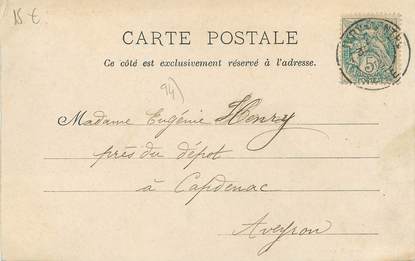 15 €
CARTE POSTALE
Ce côté est exclusivement réservé à l'adresse.
94)
Madame Eugénie Henry
près du dépot
à Capdenac
Aveyron
5